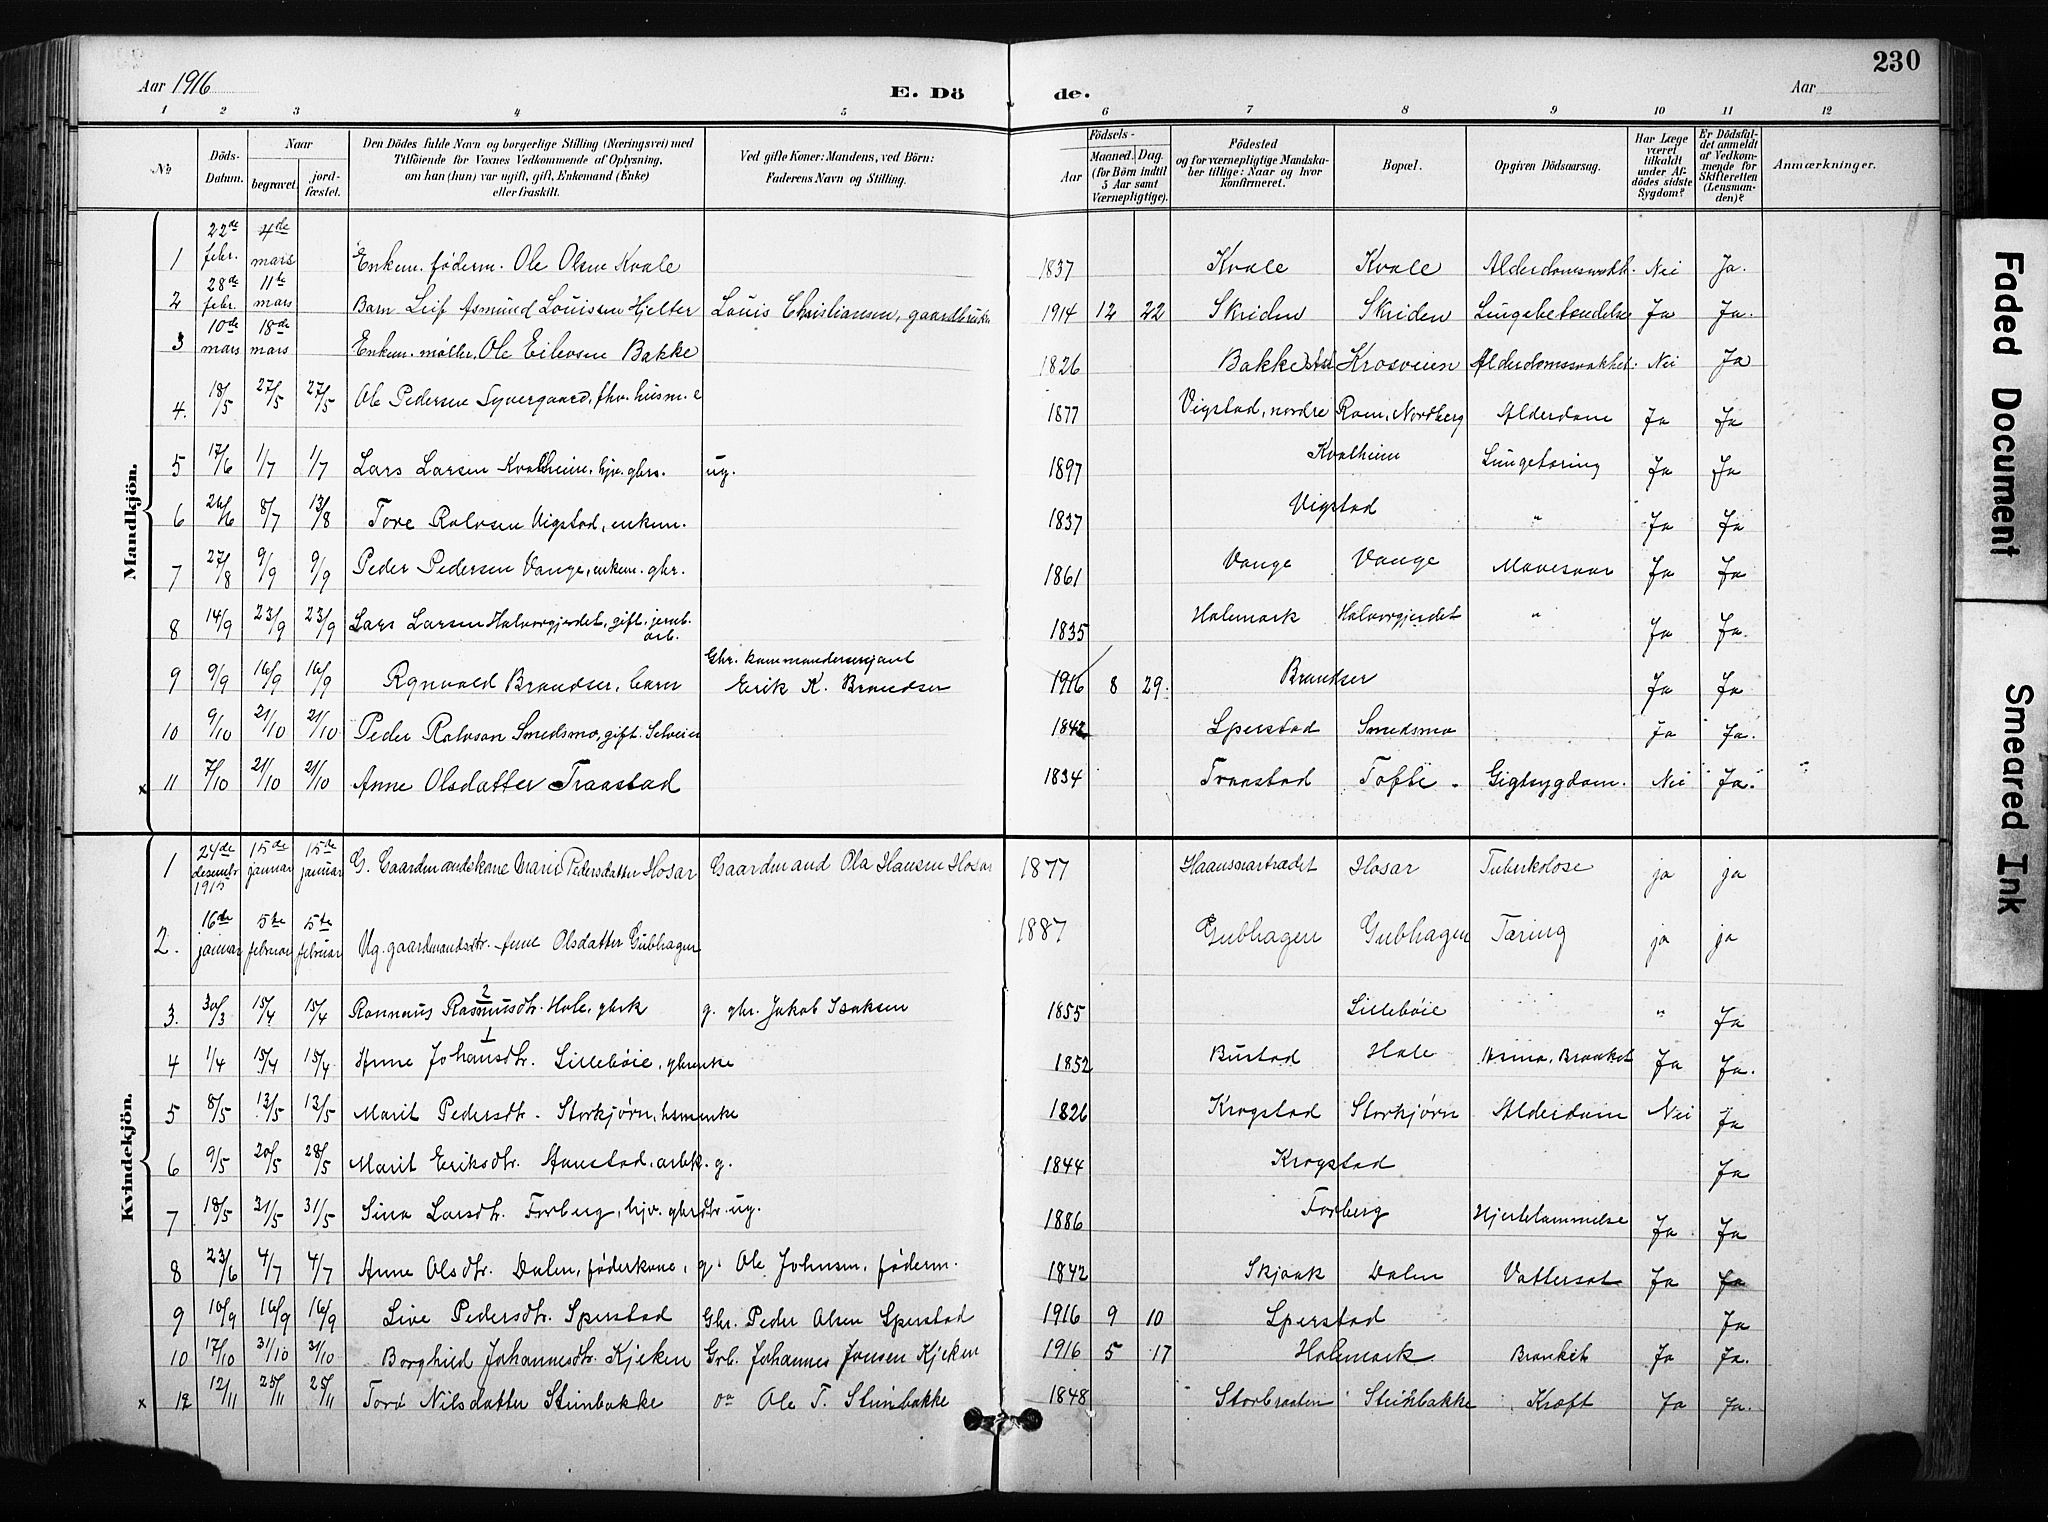 230
Aar 1916
E. Dö de.
Aar
1 2 3 4 5 6 7 8 9 10 11 12
№
Döds-Datum.
Naar
begravet.
jordfæstet.
Den Dödes fulde Navn og borgerlige Stilling (Næringsvei) med
Tilföiende for Voxnes Vedkommende af Oplysning,
om han (hun) var ugift, gift, Enkemand (Enke)
eller fraskilt.
Ved gifte Koner: Mandens, ved Börn:
Faderens Navn og Stilling.
Födsels-
Aar
Maaned. Dag.
(for Börn indtil
5 Aar samt
Værnepligtige).
Födested
og for værnepligtige Mandskaber tillige: Naar og hvor
konfirmeret.
Bopæl.
Opgiven Dödsaarsag.
Har Læge
været
tilkaldt
under Afdödes sidste
Sygdom?
Er Dödsfaldet anmeldt
af Vedkommende for
Skifteretten
(Lensmanden)?
Anmærkninger.
Mandkjön.
1 22de febr. 4de mars Enkem. føderm. Ole Olsen Kvale 1837 Kvale Kvale Nei Ja.
2 28de febr. 11te mars Barn Leif Asmund Louissen Hjelter Louis Christiansen, gaardbruker 1914 12 22 Skriden Skriden Lungebetendelse Ja Ja.
3 10de mars 18de mars Enkem. møller, Ole Eilevsen Bakke 1826 Bakke Krosveien Alderdomssvakhet. Nei Ja
4. 18/5 27/5 27/5 Ole Pedersen Syvergaard, fhv. husm. e 1877 Vigstad, nordre Ram, Nordberg Alderdom Ja Ja
5 17/6 1/7 1/7 Lars Larsen Kvalheim, hjv. gbrs. ug. 1897 Kvalheim Lungetæring Ja Ja
6 26/6 8/7 13/8 Tore Rolvsen Vigstad, enkem. 1837 Vigstad " Ja Ja
7 27/8 9/9 9/9 Peder Pedersen Vange, enkem. gbr. 1861 Vange Vange Mavesaar Ja Ja
8 14/9 23/9 23/9 Lars Larsen Halvorgjerdet, gift. jernb. arb. 1835 Holemork Halvorgjerdet " Ja Ja.
9 9/9 16/9 16/9 Rgnvald Brandser, barn Gbr. kommandersersjant Erik K. Brandser 1916 8 29. Brandser Ja Ja
10 9/10 21/10 21/10 Peder Rolvson Smedsmo, gift. Selveier 1842 Sperstad Smedsmo Ja Ja.
x 11 7/10 21/10 21/10 Anne Olsdatter Traastad 1834 Traastad Tofte - Gigtsygdom. Nei Ja. "
Kvindekjön.
1 24de desembr 1915 15de januar 15de januar G. Gaardmandskone Marie Pedersdatter Hosar Gaardmand Ola Hansen Hosar 1877 Hosar Tuberkolose ja ja
2. 16de januar 5te februar 5te februar Ug. gaardmandsdtr. Anne Olsdatter Gubhagen 1887 Gubhagen Gubhagen Tæring ja ja
3. 30/3 15/4 15/4 Rannaus Rasmusdtr. 2 Hole, gbrk g. gbr. Jakob Isaksen 1855 Lillebøie " Ja
4 1/4 15/4 15/4 Anne Johansdtr. 1 Lillebøie, gbrenke 1852 Bustad Hole Asma, Bronket Ja Ja.
5 8/5 13/5 13/5 Marit Pedersdtr. Storkjørn, hsmenke 1826 Krogstad Storkjørn Alderdom Nei Ja
6 9/5 20/5 28/5 Marit Eriksdtr. Aanstad, arbk. g. 1844 Krogstad Ja
7 18/5 31/5 31/5 Sina Larsdtr. Forberg, hjv. gbrdtr. ug. 1886 Forberg Hjertelammelse Ja Ja
8 23/6 4/7 4/7 Anne Olsdtr. Dalen, føderkone, g. Ole Johnsen, føderm. 1842 Skjaak Dalen Vattersot Ja Ja
9 10/9 16/9 16/9 Live Pedersdtr. Sperstad Gbr. Peder Olsen Sperstad 1916 9 10 Sperstad Ja
10 17/10 31/10 31/10 Borghild Johannesdtr. Kjeken Grb. Johannes Jonsen Kjeken 1916 5 17 Holemork Bronkit Ja Ja.
x 12 12/11 25/11 25/11 Toro Nilsdatter Steinbakke Ole T. Steinbakke 1848 Storbraaten Steinbakke Kræft Ja Ja.
Faded Document
Smeared Ink